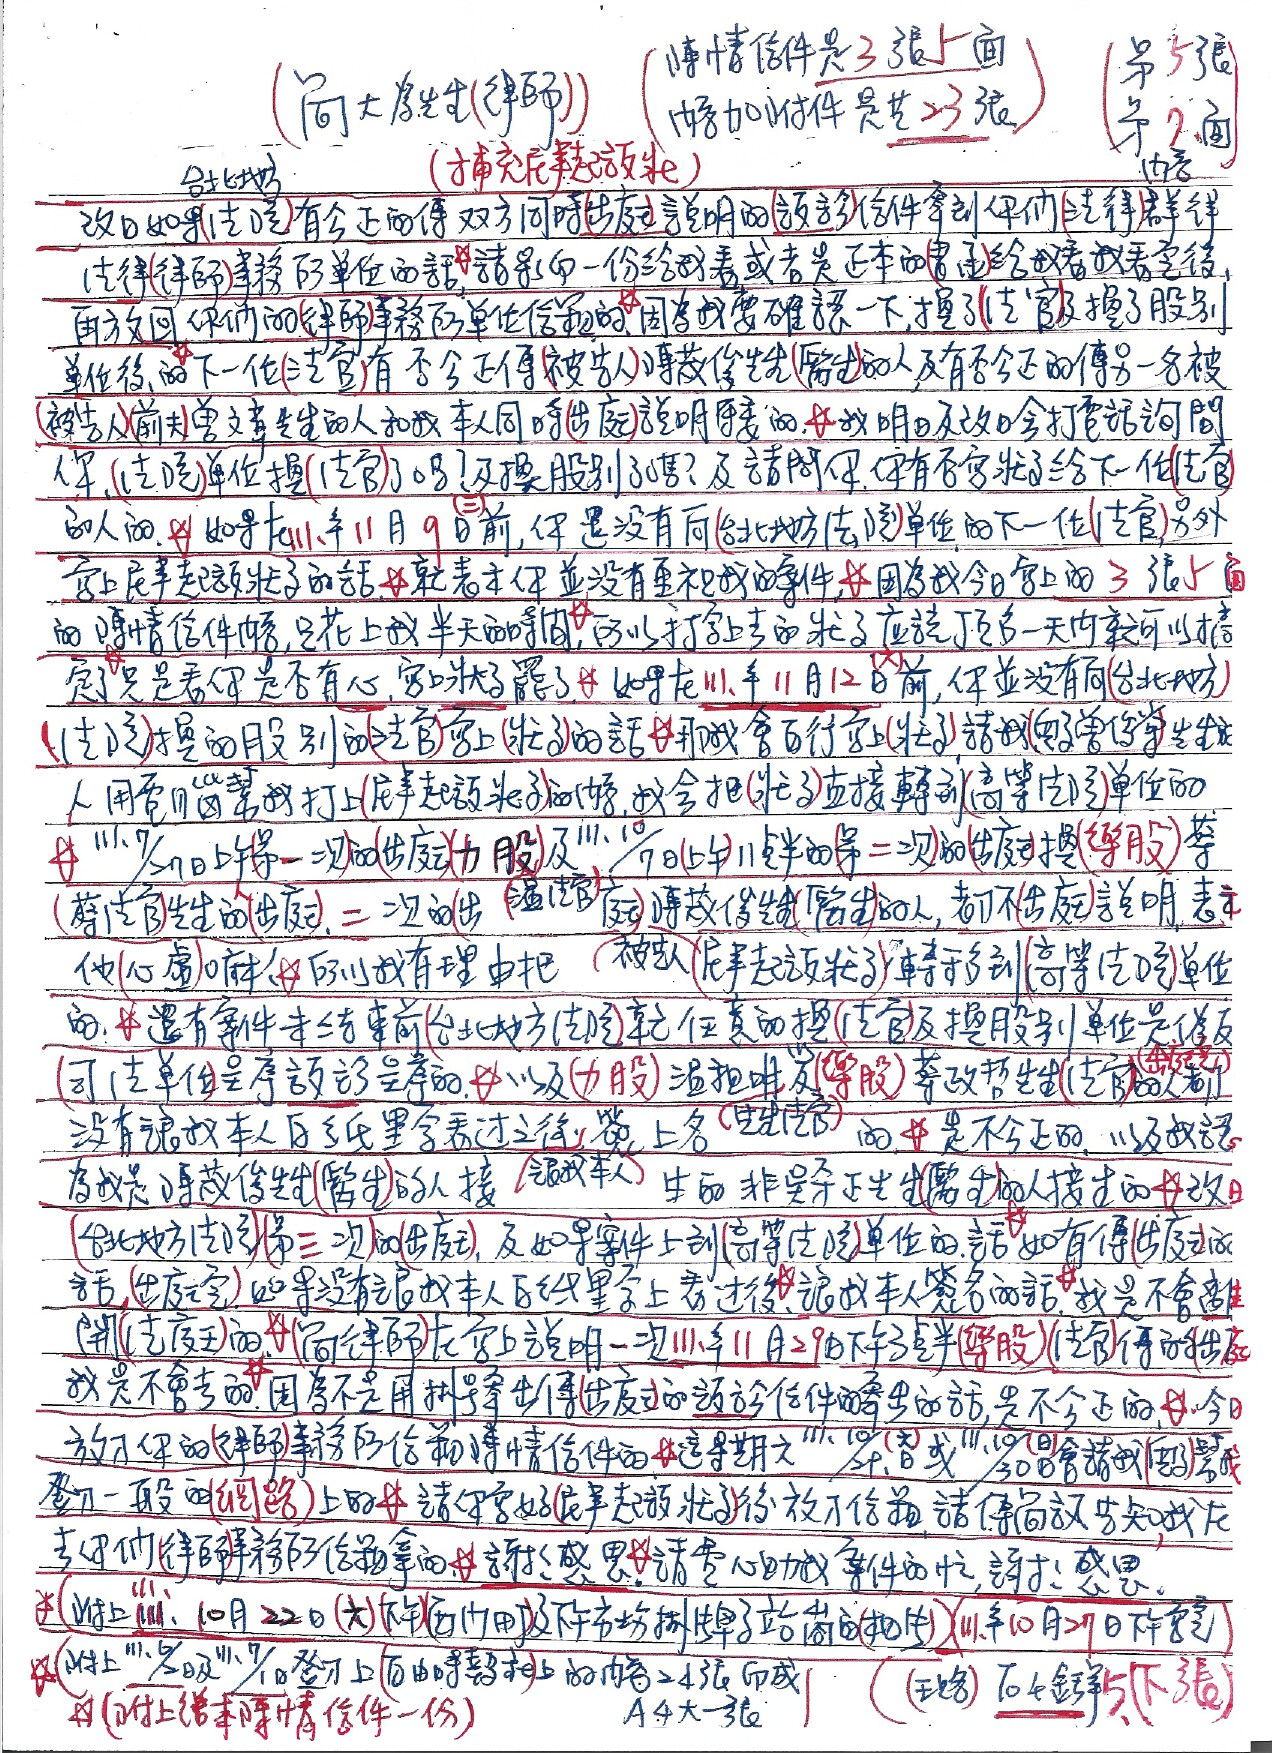 (簡大為先生(律師))
(陳情信件是3張5面
內容加附件是共23張)
(第5張
第7.面)
(補充民事起訴狀)
內容
台北地方
改日如果(法院)有公正的傳双方同時(出庭)說明的(訴訟)信件寄到你們(法律)群祥
法律(律師)事務所單位的話☆請影印一份給我看或者是正本的(書面)給我看我看完後,
再放回你們的(律師)事務所單位信箱的☆因為我要確認一下,換了(法官)及換了股別
單位後,的☆下一任(法官)有否公正傳(被告人)陳茂俊先生(醫生)的人及有否公正的傳另一名被
(被告人)(前夫)曾文章先生的人和我本人同時(出庭)說明原委的.☆我明日及改日會打電話詢問
你,(法院)單位換(法官)了嗎?及換股別了嗎?及請問你.你有否寫狀子給下一任(法官)
的人的.☆如果在111.年11月9日(三)前,你還沒有向(台北地方法院)單位的下一任(法官)另外
寫上民事起訴狀子的話☆就表示你並沒有重視我的案件,☆因為我今日寫上的3張5面
的陳情信件內容,只花上我半天的時間,☆所以打字上去的狀子應該頂多一天內就可以搞
定了☆只是看你是否有心,寫上狀子罷了☆如果在111.年11月12日(六)前,你並沒有向(台北地方)
(法院)換的股別的(法官)寫上(狀子)的話☆那我會自行寫上(狀子)請我(兒子)曾俊華先生本
人用電腦幫我打上(民事起訴狀子)的內容,我會把(狀子)直接轉到(高等法院)單位的
☆111.7/27日上午(第一次)的(出庭)(力股)及111.10/7日(上午)11點半的第二次的(出庭)換(樂股)蔡
(蔡法官)先生的(出庭),二次的出(溫法官)庭)陳茂俊先生(醫生)的人,都不(出庭)說明,表示
他(心虛)嘛!☆所以我有理由把(被告人)(民事起訴狀子)轉移到(高等法院)單位
的.☆還有案件未結束前(台北地方法院)就任意的換(法官)及換股別單位是違反
(司法單位是序訴訟是序的.☆以及(力股)溫祖明及(樂股)蔡政哲先生(法官)(出庭完)的人都
沒有讓我本人白紙黑字看過之後,簽上名(先生法官)的☆是不公正的,以及我認
為我是陳茂俊先生(醫生)的人接(讓我本人)生的非吳榮正先生(醫生)的人接生的☆改日
(台北地方法院)(第三次)的(出庭),及如果案件上到(高等法院)單位的.話☆如有傳(出庭)的
話,(出庭完)如果沒有讓我本人白紙黑字上看過後☆讓我本人簽名的話☆我是不會離
開(法庭)的☆(簡律師)在寫上說明一次111.年11月29日下午3點半(樂股)(法官)傳的(出庭)
我是不會去的☆因為不是用掛號寄出傳(出庭)的訴訟信件的寄出的話,是不公正的,☆今日
放到你的(律師)事務所信箱陳情信件的☆這星期六111.10/29.日(六)或111.10/30日(日)會請我(兒子)幫我
登到一般的(網路)上的☆請你寫好(民事起訴狀子)後放到信箱,請傳簡訊告知,我在
去你們(律師)事務所信箱拿的☆謝謝感恩☆請費心助我案件的忙,謝謝感恩.
☆(附上111.10月22日(六)下午(西門町)及下午市場掛牌子站崗的(相片))(111.年10月27日下午寫完)
☆(附上111.6/2日及111.7/1日登到上(自由時報)報上的內容24張印成
A4大一張)
((王璐) 石上金鋒 5.(下張)
☆(附上繕本陳情信件一份)